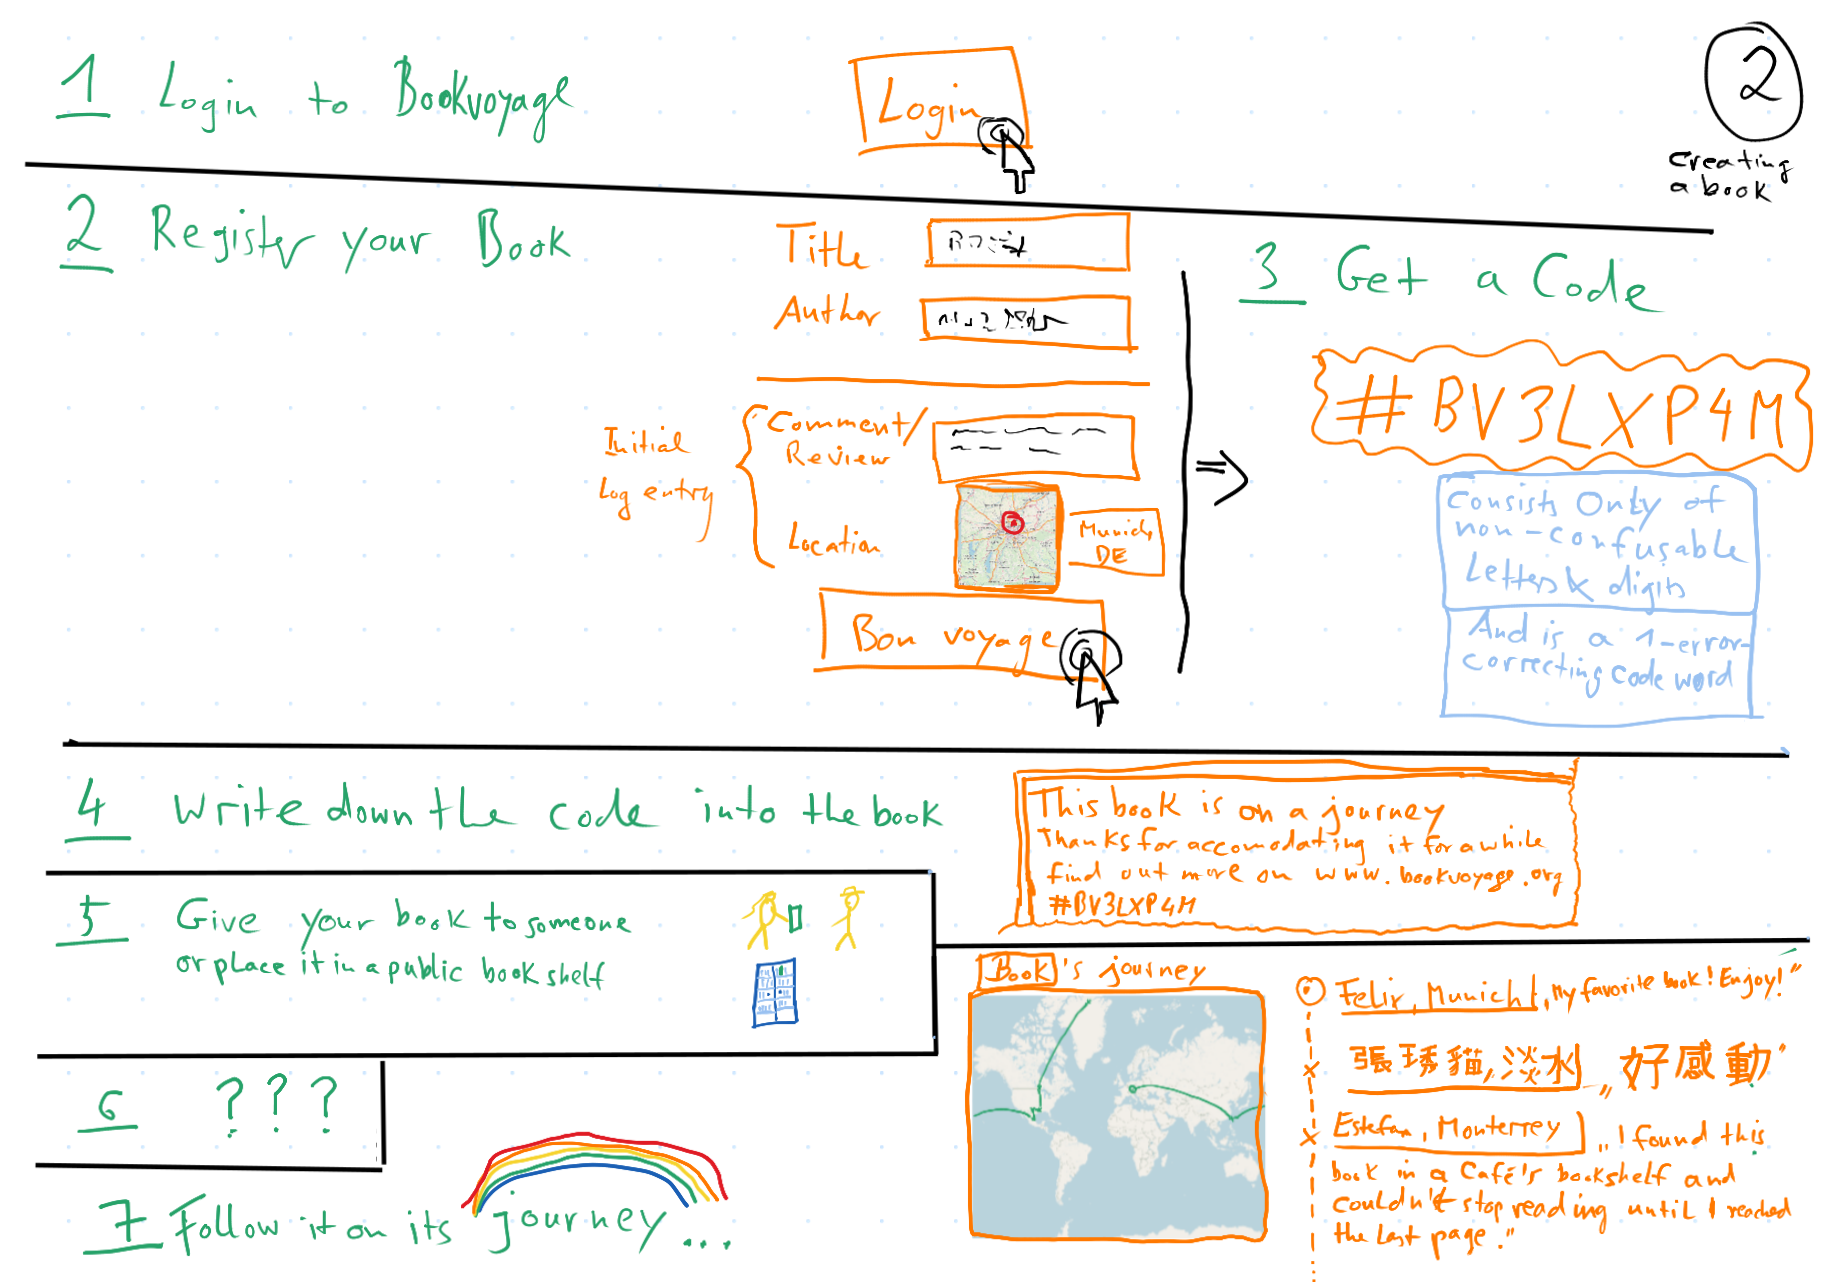 1 Login to Bookvoyage
Login
2
Creating
a book
2 Register your Book
Title
Author
Initial
Log entry
Comment/
Review
Location
Munich,
DE
Bon voyage
3 Get a Code
#BV3LXP4M
Consists Only of
non-confusable
Letters & digits
And is a 1-error-
correcting code word
4 Write down the code into the book
This book is on a journey
Thanks for accomodating it for a while
find out more on www.bookvoyage.org
#BV3LXP4M
5 Give your book to someone
or place it in a public book shelf
6 ???
7 Follow it on its journey...
Book's journey
Felix, Munich, My favorite book! Enjoy!"
張琇貓, 淡水 „好感動"
Estefan, Monterrey „I found this
book in a Café's bookshelf and
couldn't stop reading until I reached
the last page."